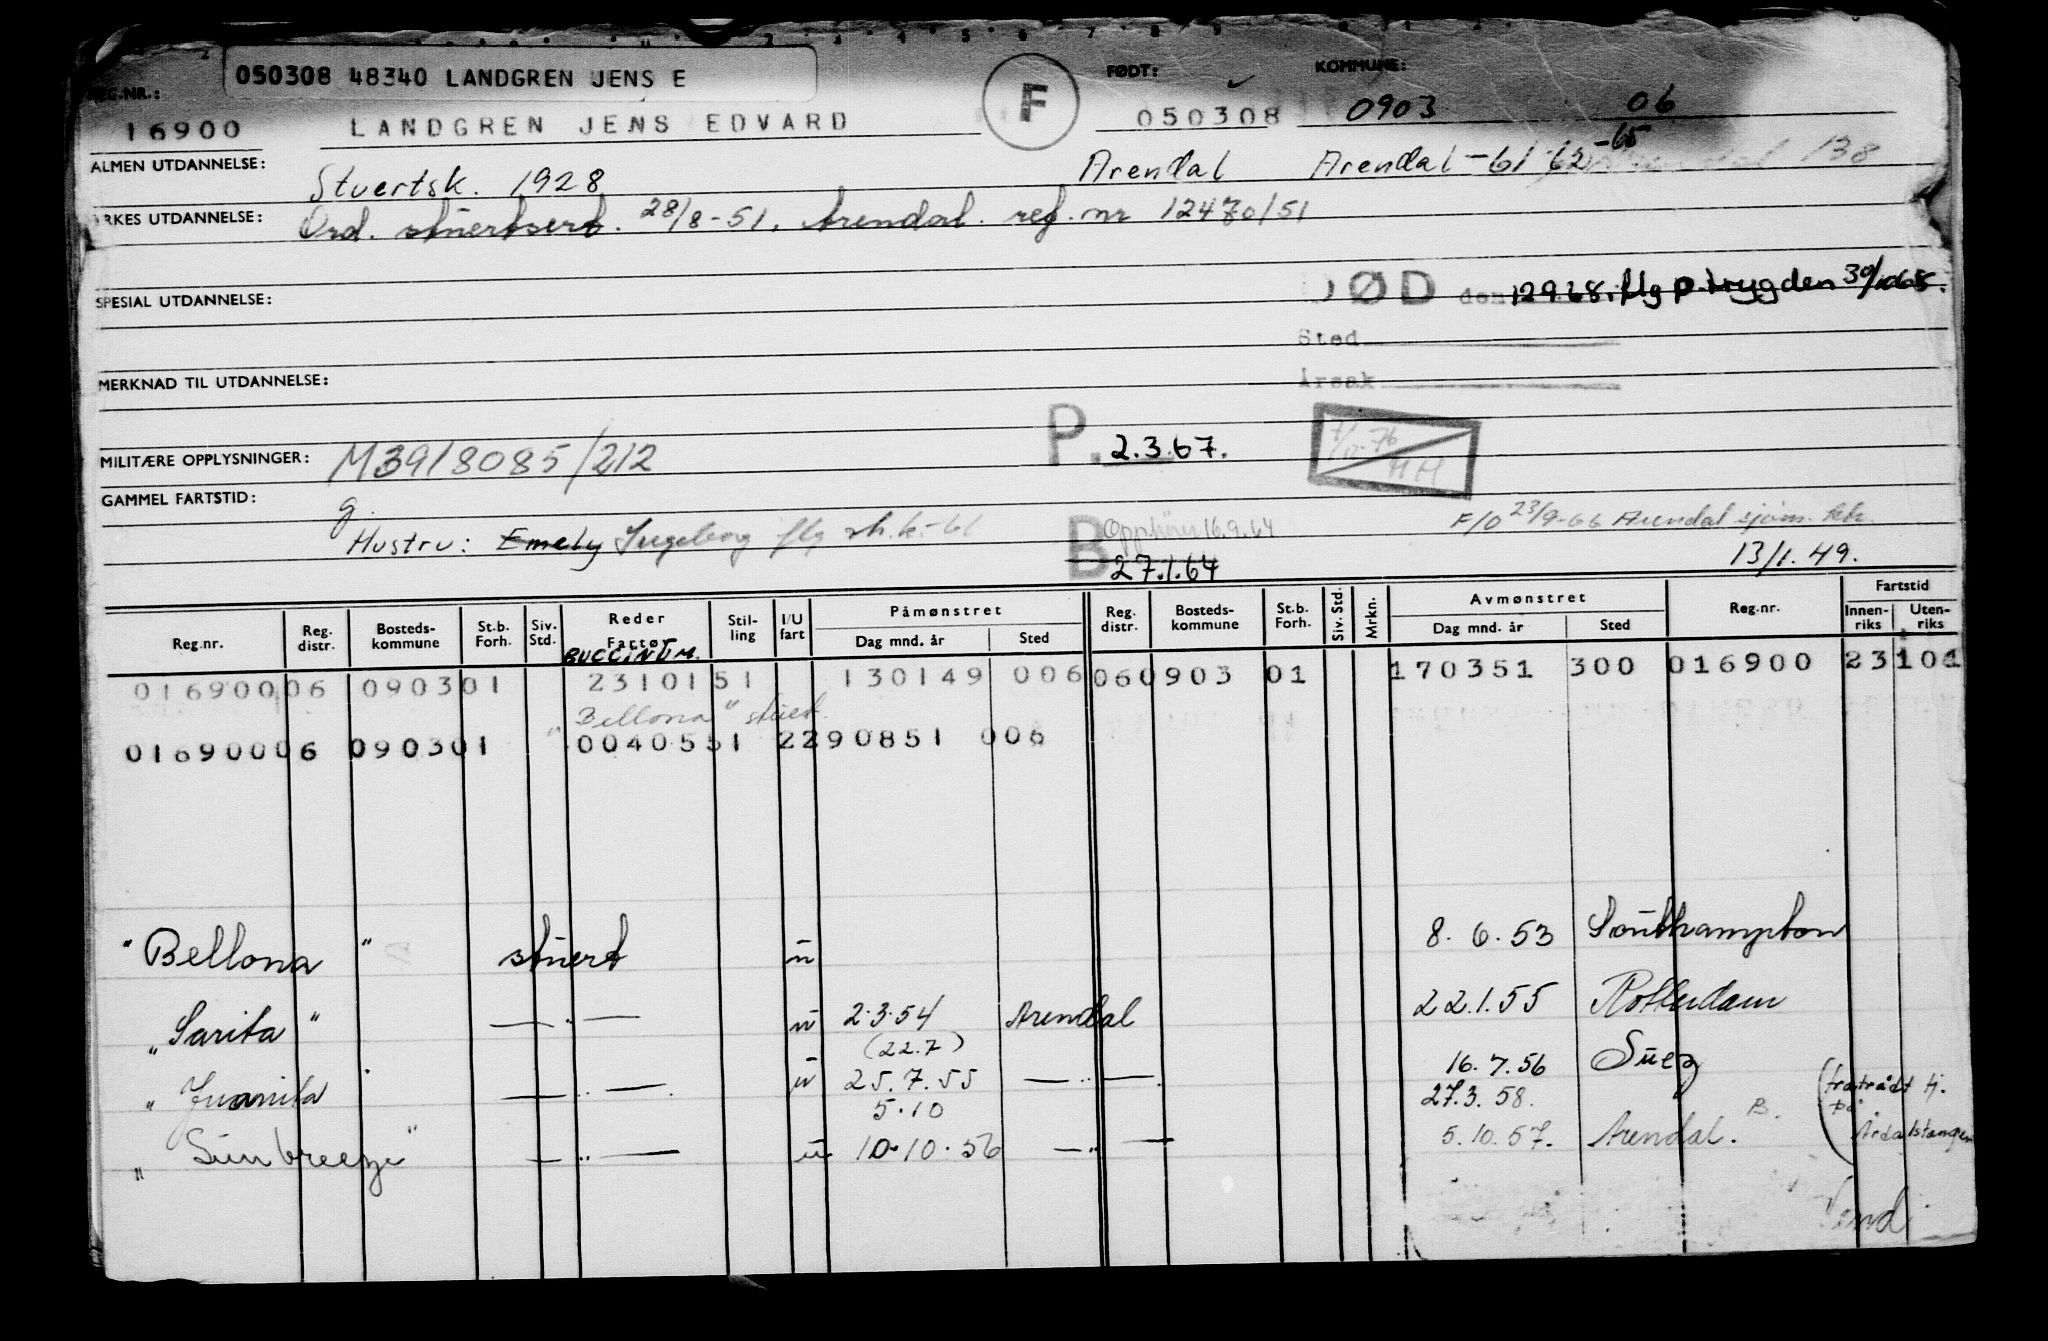 050308 48340 LANDGREN JENS E
REG.NR.:
F
FØDT:
KOMMUNE:
16900 LANDGREN JENS EDVARD 050308 0903 06
ALMEN UTDANNELSE: Stuertsk. 1928 Arendal Arendal -61 62 -65 138
YRKES UTDANNELSE: Ord. stuertsert. 28/8-51. Arendal. reg. nr 12470/51
SPESIAL UTDANNELSE:
DØD den 12968. flg p.trygden 30/1068.
Sted
Årsak
MERKNAD TIL UTDANNELSE:
MILITÆRE OPPLYSNINGER: M39/8085/212
P. 2.3.67.
7/10-76 HH
GAMMEL FARTSTID: g.
Hustru: Emely Ingeborg flg sk.k-61
B Opphører 16.9.64
27.1.64
F/O 23/9-66 Arendal sjøm. ktr.
13/1. 49.
Reg.nr. Reg. distr. Bosteds-kommune St.b. Forh. Siv. Std. Reder Fartøy Stil-ling I/U fart Påmønstret Dag mnd. år Sted Reg. distr. Bosteds-kommune St.b. Forh. Siv. Std. Mrkn. Avmønstret Dag mnd. år Sted Reg.nr. Fartstid Innen-riks Uten-riks
BUCCINUM.
016900 06 0903 01 23101 51 130149 006 06 0903 01 170351 300 016900 23101
"Bellona" stuert
016900 06 0903 01 00405 51 2 290851 006
"Bellona" stuert u 8. 6. 53 Southampton
"Sarita" — " — u 2.3.54 Arendal 22.1.55 Rotterdam
(22.7)
"Juanita — " — u 25.7.55 — " — 16.7.56 Suez
5.10 27.3.58. (fratrådt tj. på Årdalstangen
"Sunbreeze" — " — u 10.10.56 — " — 5.10.57. Arendal. B.
Vend